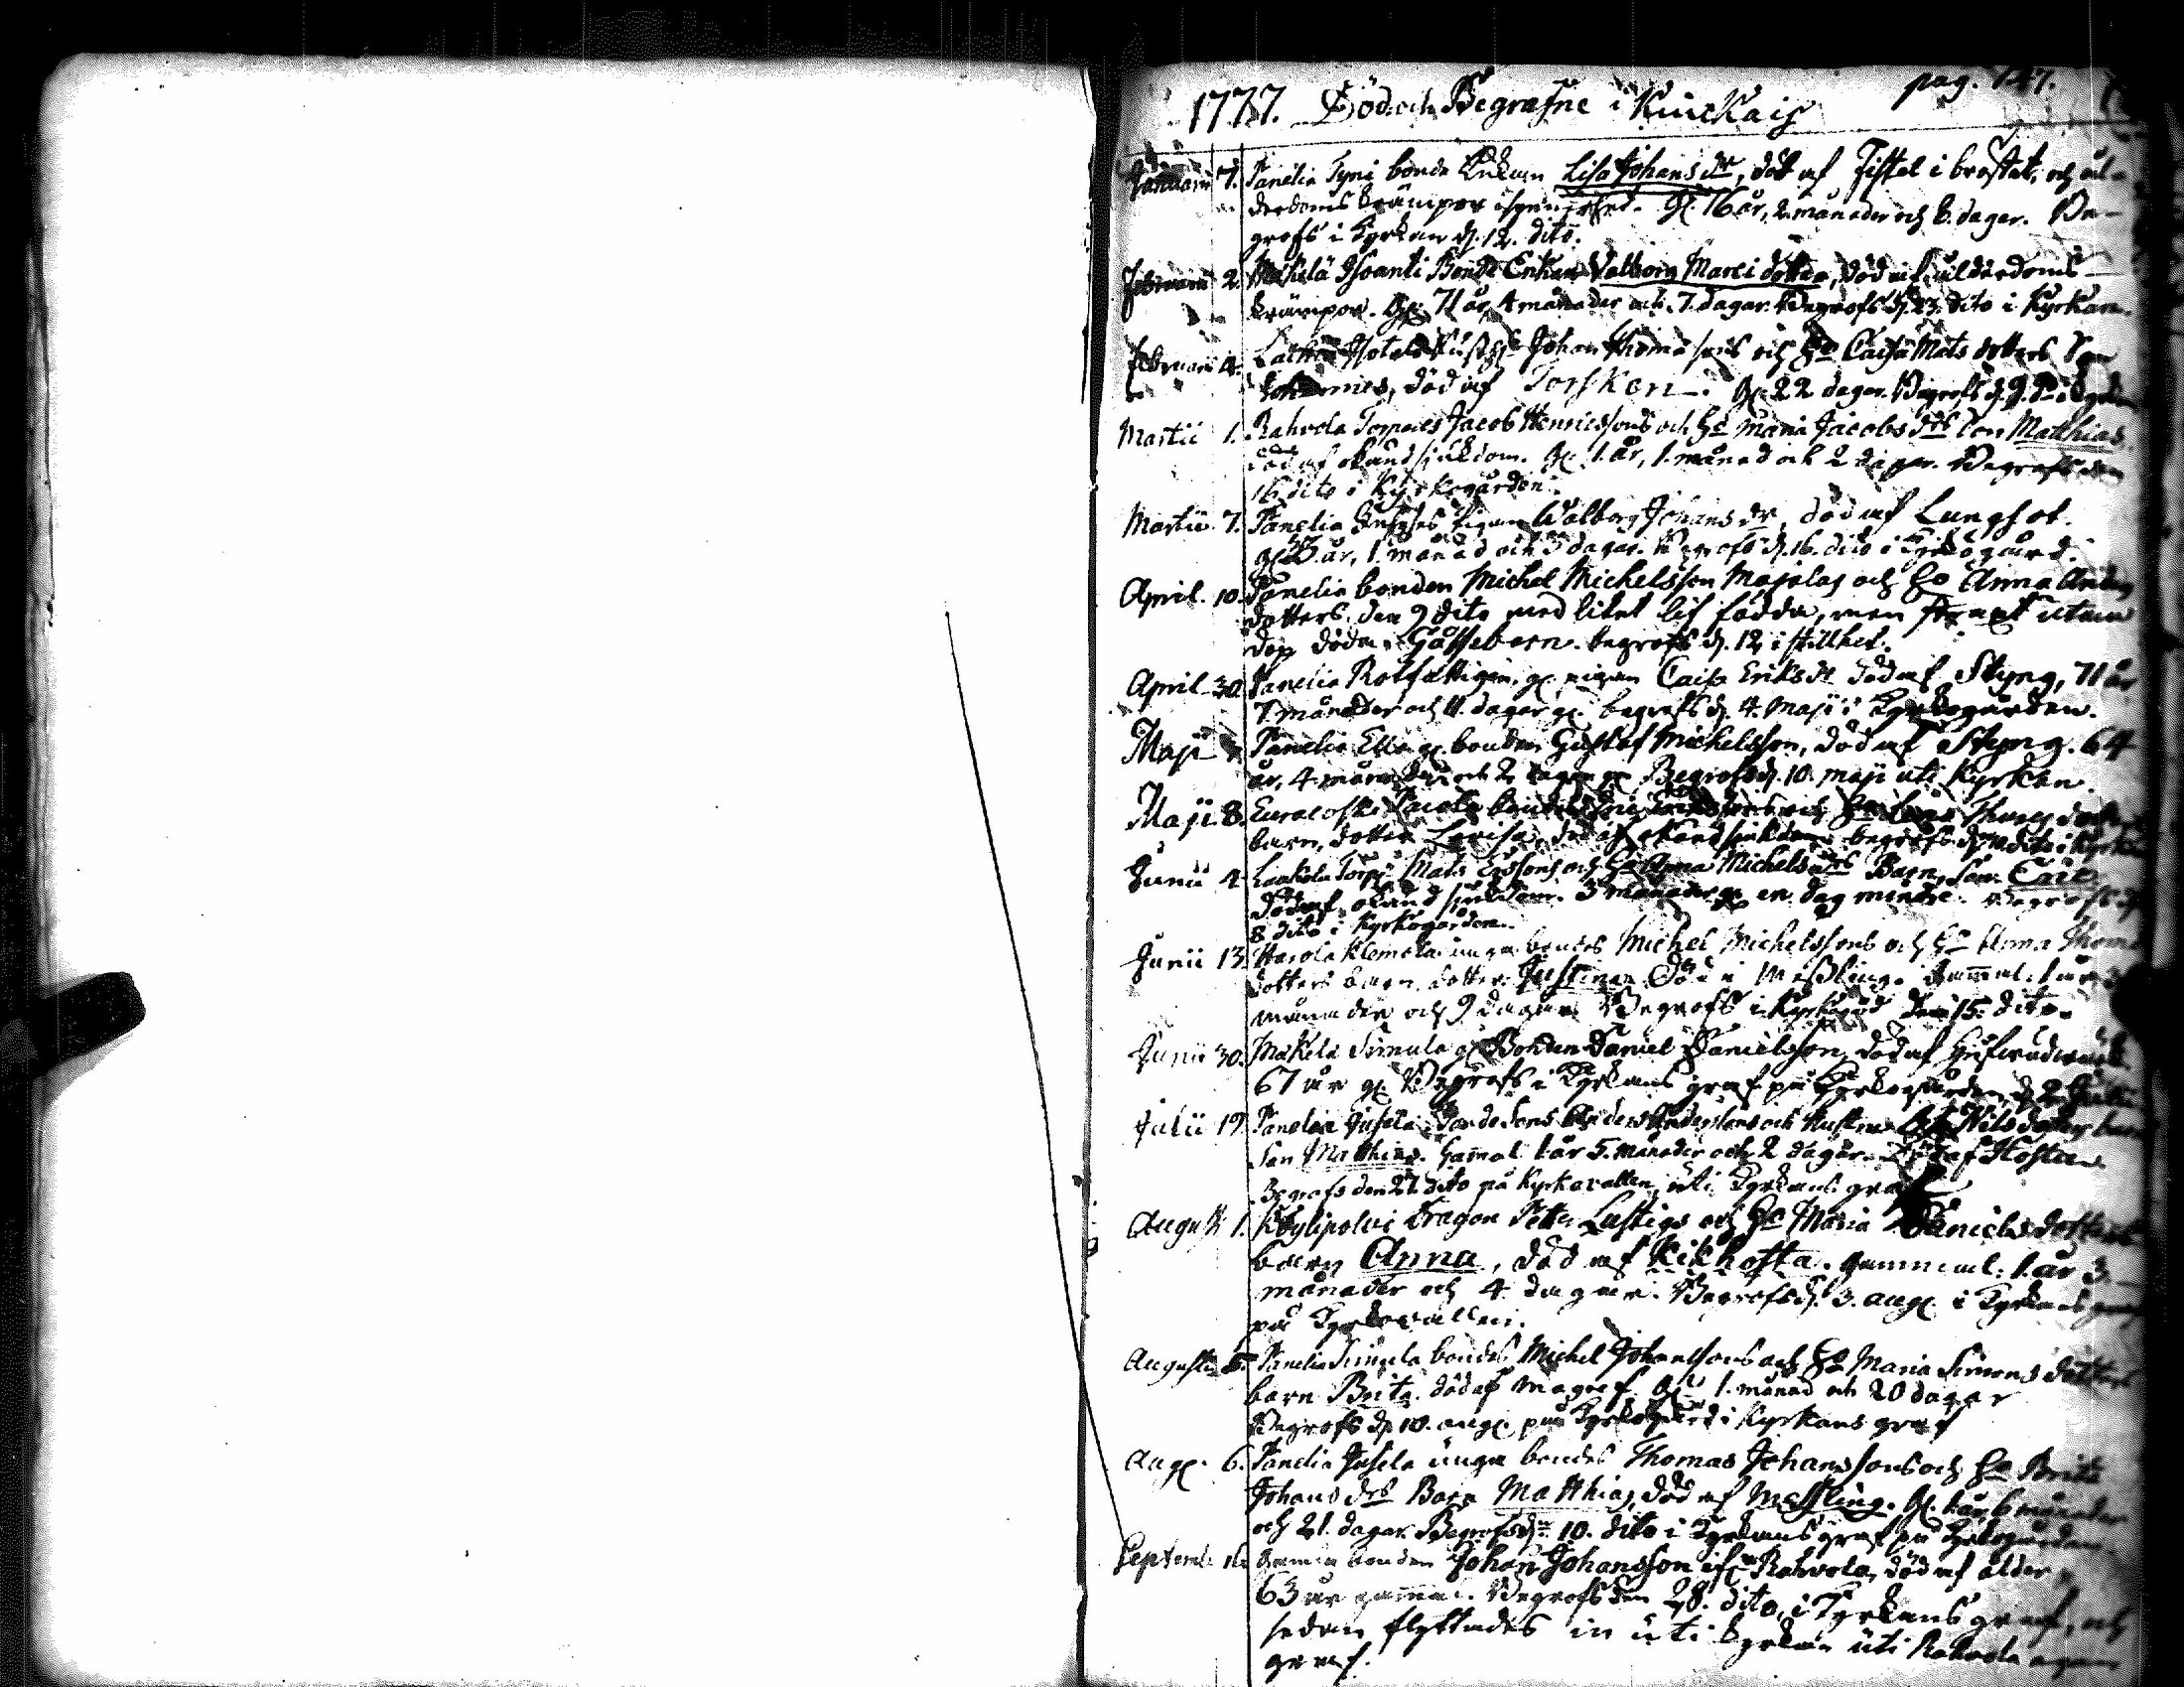 pag. 147.
1777. Död och Begrafne i Kuickais
Januarii 7. Panelia Tyni bonde Enkan Lisa Johans dr, död af Fistel i bröstat, och ål-
derdoms krämpor G. 76 år, 2. månader och 6. dagar. Be-
grofs i Kyrkan d. 12. dito.
Februarii 2. Mäkilä Isoanti Bonde Enkan Valborg Marci dotter, död af ålderdoms
krämpor. G. 71 år, 4 månader och 7. dagar. Begrofs d. 23. dito i Kyrkan.
Februarii 4. Johan Thomæ sons och H:o Caisa Mats dotters Son
Johannes, död af Torsken. G. 22 dagar. Begrofs d. 9. d:o i Kyrkan
Martii 1. Rahvola Torpares Jacob Henricssons och H:o Maria Jacobs drs Son Matthias
död af okänd siukdom. G. 1. år, 1. månad och 2 dagar. Begrofs den
16 dito i Kyrkogården.
Martii 7. Panelia pigan Walborg Johans dr, död af Lungsot.
G. 23 år, 1. månad och 3 dagar. Begrofs d. 16. dito i Kyrkogård.
April. 10. Panelia bonden Michel Michelsson Majalas och H:o Anna Anders
dotters, den 9 dito med litet lif födda, men straxt utan
dop döda Gåssebarn. begrofs d. 12. i stillhet.
April 30. Panelia Rotfattigen, g. pigan Caisa Eriks dr död af Styng, 71 år
7. månader och 11. dagar g. begrofs d. 4. Maji i Kyrkogården.
Maji Panelia Ella g. bonden Gustaf Michelsson, död af Styng. 64
år, 4. månader och 2 dagar g. Begrofs d. 10. maji uti Kyrkan.
Maji 8. Euracoski bondes och H:o Thomæ dotters
barn, dotter Lovisa, död af okänd siukdom begrofs dito i Kyrkan
Junii 4. Torp. Mats Erssons och H:o Anna Michels drs Barn, Son Eric
död af okänd siukdom. 3 månader g. en dag mindre. Begrofs d.
8 dito i Kyrkogården.
Junii 13. Harola Klemela unga bondes Michel Michelssons och H:o Anna Thomæ
dotters barn dotter Justina. Död i Mässling. Gammal: 1 år 3
månader och 9 dagar. Begrofs i Kyrkogård den 15. dito.
Junii 30. Mäkelä Simula g. Bonden Daniel Danielsson, död af
67 år g. Begrofs i Kyrkans graf på Kyrkogården d. 2 Julii
Julii 19. Panelia Jusela Bonde Sons Anders Anderssons och Hustru Nils dotters barn
Son Matthias. Gamal 1 år 5. månader och 2 dagar. Död af Hostan
Begrofs den 27. dito på Kyrkovallen, uti Kyrkans graf
August. 1. Köylipolvi Dragon Petter Lustigs och H:o Maria Daniels dotters
barn Anna, död af Kikhosta. gammal: 1. år 3.
månader och 4 dagar. Begrofs d. 3. aug. i Kyrkans graf
på Kyrkovallen.
Augusti 5. Panelia Simula bondes Michel Johanssons och H:o Maria Simons dotters
barn Brita död af magref G. 1. månad och 20 dagar
Begrofs d. 10. aug. på Kyrkogård i Kyrkans graf
Aug. 6. Panelia Jusela unga bondes Thomas Johanssons och H:o Brita
Johans drs Barn Matthias, död af Mässling. G. 1 år, 6 månader
och 21. dagar. Begrofs d. 10. dito i Kyrkans graf på Kyrkogården
Septemb. 16 Gamla bonden Johan Johansson Rahvola, död af ålder
63 år gammal. Begrofs den 28. dito, i Kyrkans graf, och
sedan flyttades in uti Kyrkan uti Rahvola egen
graf.